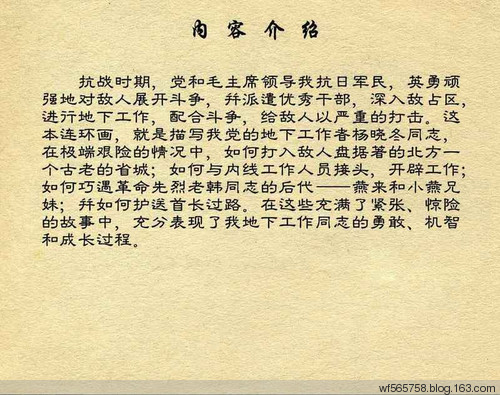 内容介绍
抗战时期，党和毛主席领导我抗日军民，英勇顽
强地对敌人展开斗争，幷派遣优秀干部，深入敌占区，
进行地下工作，配合斗争，给敌人以严重的打击。这
本连环画，就是描写我党的地下工作者杨晓冬同志，
在极端艰险的情况中，如何打入敌人盘据著的北方一
个古老的省城；如何与内线工作人员接头，开辟工作；
如何巧遇革命先烈老韩同志的后代——燕来和小燕兄
妹；幷如何护送首长过路。在这些充满了紧张、惊险
的故事中，充分表现了我地下工作同志的勇敢、机智
和成长过程。
wf565758.blog.163.com